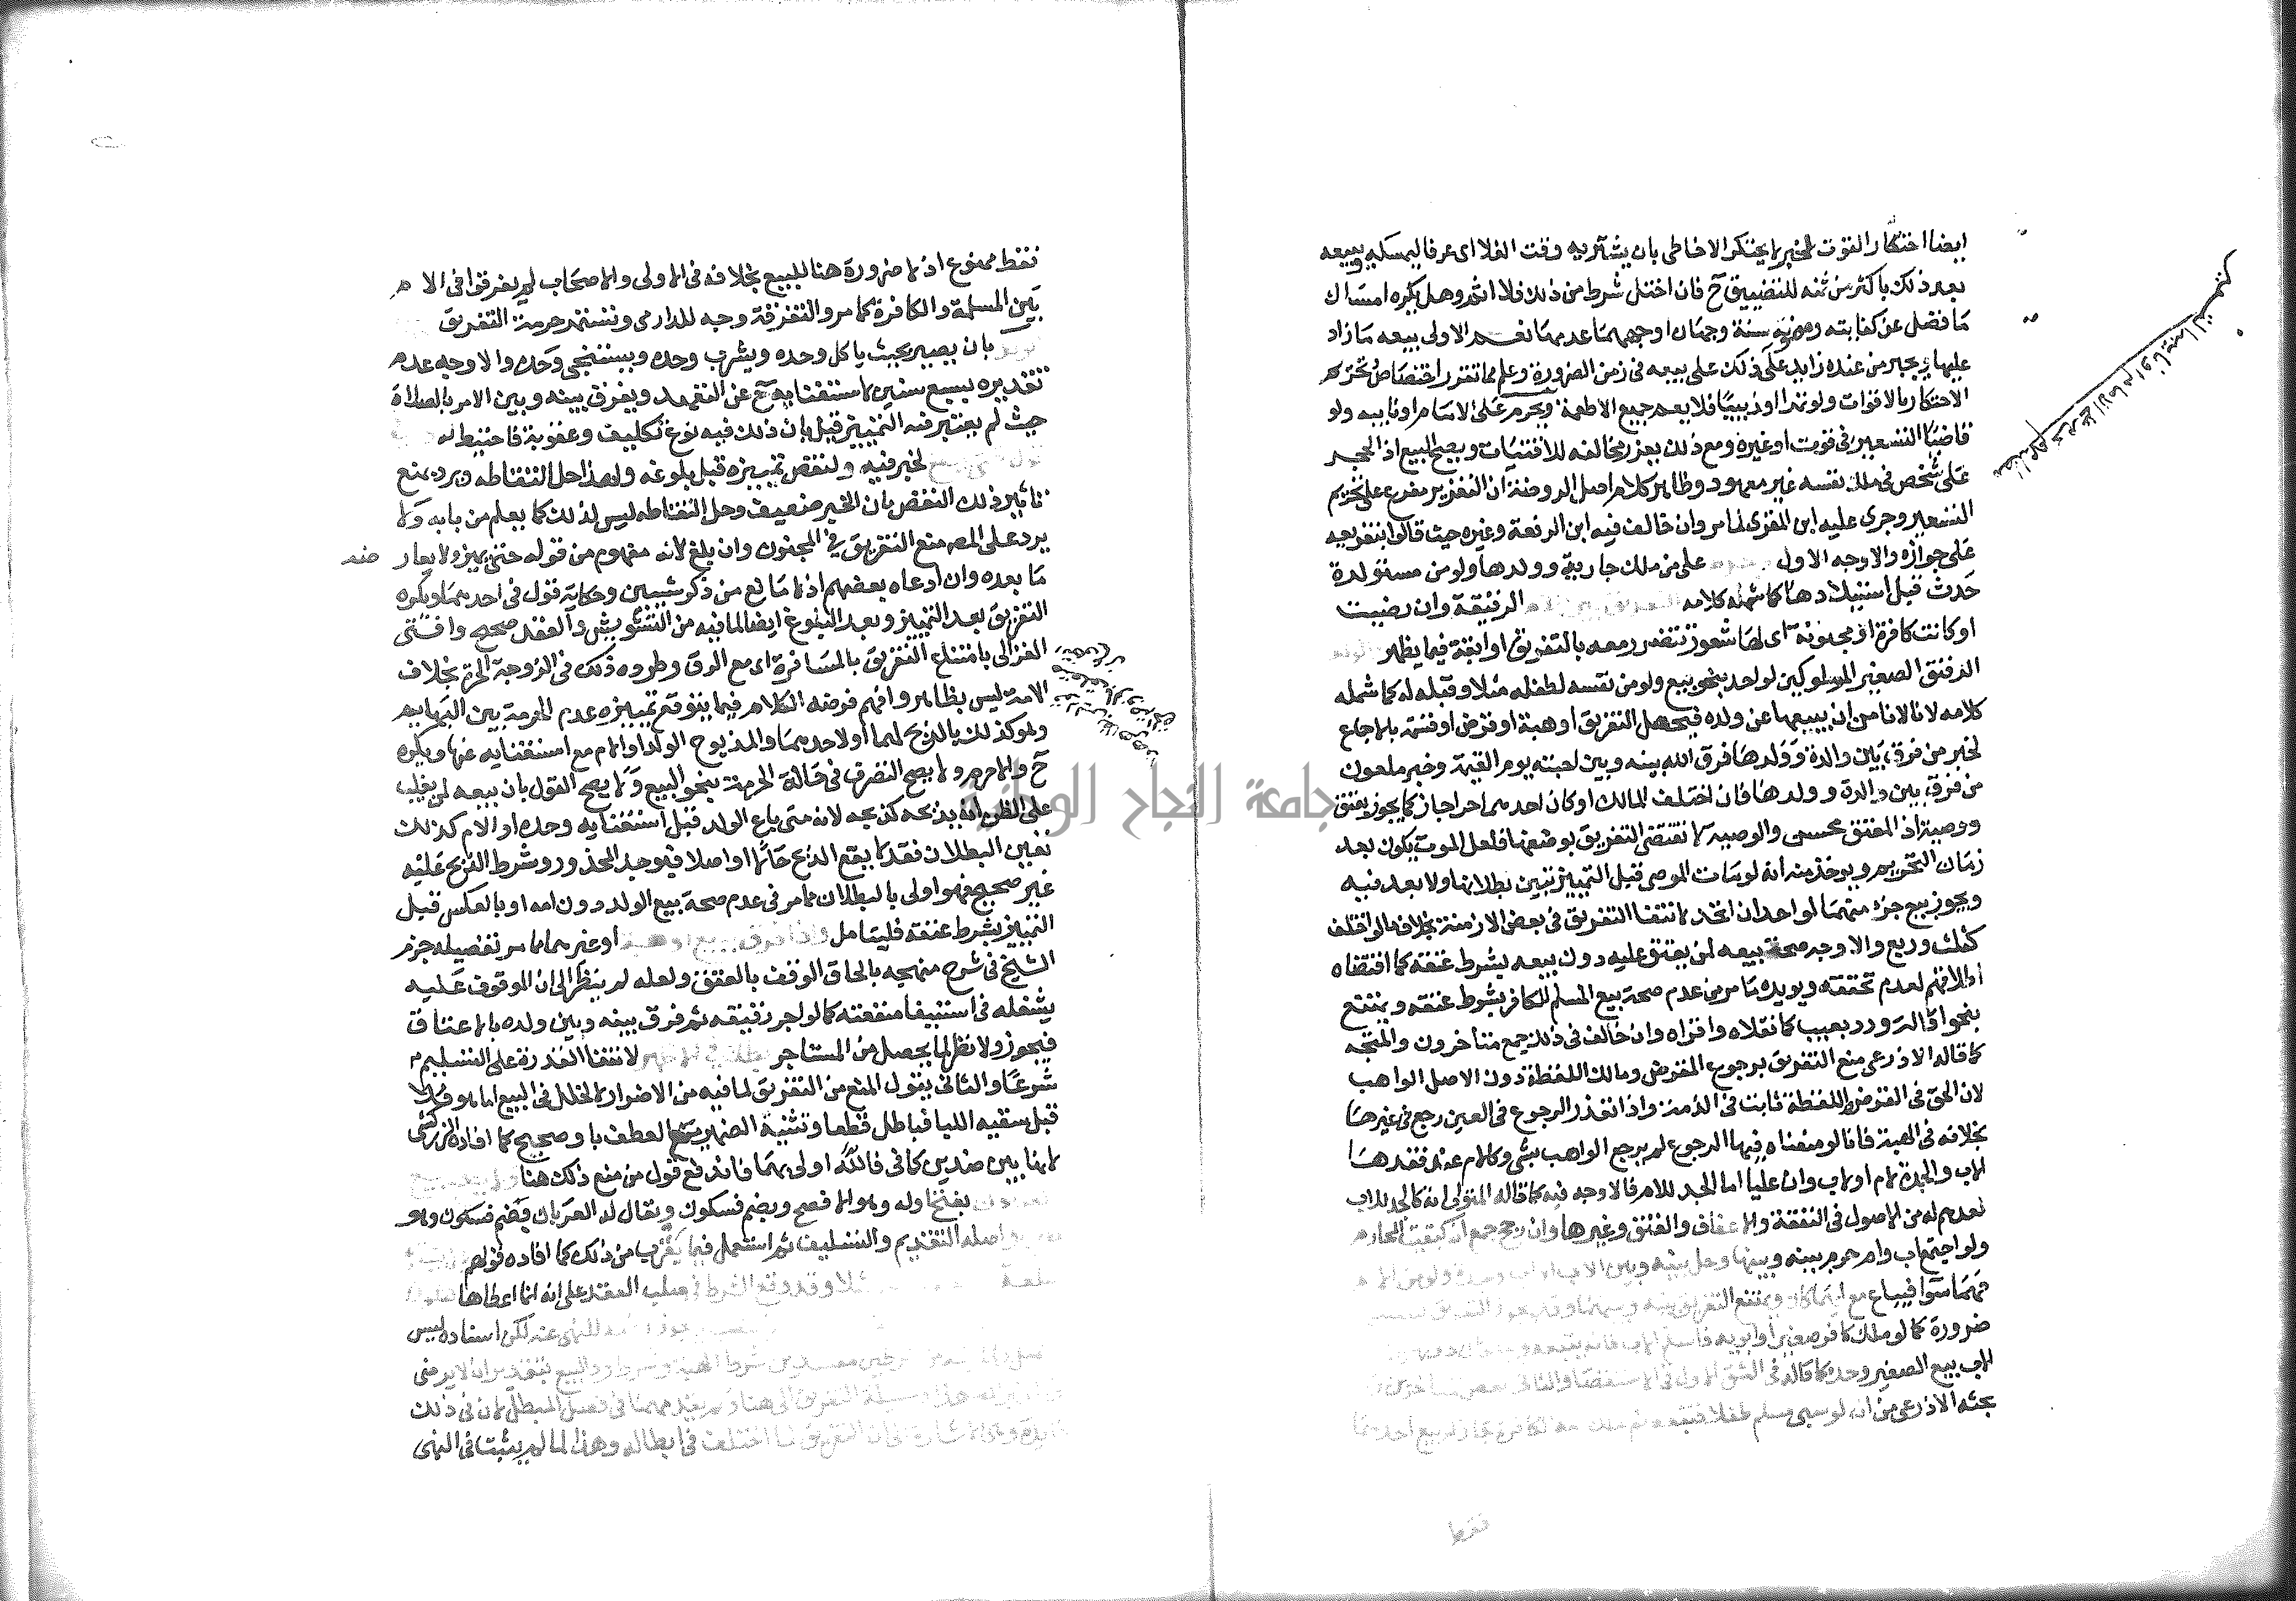 ايضا احتكار القوت لخبر لا يحتكر الا خاطى بان يشتريه وقت الغلا اى عرفا ليمسكه ويبيعه
بعد ذلك باكثر من ثمنه للتضييق ح فان اختل شرط من ذلك فلا اثم وهل يكره امساك
ما فضل عن كفايته ومونه سنة وجهان اوجههما عدمها نعم الاولى بيعه ما زاد
عليها ويجبر من عنده زايد على ذلك على بيعه فى زمن الضرورة وعلم مما تقرر اختصاص تحريم
الاحتكار بالاقوات ولو تمرا او زبيبا فلا يعم جميع الاطعمة ويحرم على الامام او نايبه ولو
قاضيا التسعير فى قوت او غيره ومع ذلك يعزر مخالفه للافتيات ويصح البيع اذ الحجر
على شخص فى ملك نفسه غير معهود وظاهر كلام اصل الروضة ان التعزير مفرع على تحريم
التسعير وجرى عليه ابن المقرى لما مر وان خالف فيه ابن الرفعة وغيره حيث قالوا بتفريعه
على جوازه والاوجه الاول على من ملك جارية وولدها ولو من مستولدة
حدث قبل استيلادها كما شمله كلامه التفريق بين الام الرقيقة وان رضيت
او كانت كافرة او مجنونة اى لها شعور تتضرر معه بالتفريق او ابقة فيما يظهر والولد
الرقيق الصغير المملوكين لواحد بنحو بيع ولو من نفسه لطفله مثلا وقبله له كما شمله
كلامه لانا لا نامن ان يبيعها عن ولده فيحصل التفريق او هبة او قرض او قسمة بالاجماع
لخبر من فرق بين والدة وولدها فرق الله بينه وبين احبته يوم القيمة وخبر ملعون
من فرق بين والدة وولدها فان اختلف المالك او كان احدهما حرا جاز كما يجوز بعتق
ووصية اذ المعتق محسن والوصية لا تقتضى التفريق بوضعها فلعل الموت يكون بعد
زمان التحريم ويوخذ منه انه لو مات الموصى قبل التمييز تبين بطلانها ولا بعد فيه
ويجوز بيع جزء منهما لواحد ان اتحد لانتفا التفريق فى بعض الازمنة بخلافه لو اختلف
كثلث وربع والاوجه صحة بيعه لمن يعتق عليه دون بيعه بشرط عتقه كما اقتضاه
لعدم تحققه ويويده ما مر من عدم صحة بيع المسلم للكافر بشرط عتقه ويمتنع
بنحو اقالة ورد بعيب كما نقلاه واقراه وان خالف فى ذلك جمع متاخرون والمتجه
كما قاله الاذرعى منع التفريق برجوع المقرض ومالك اللقطة دون الاصل الواهب
لان الحق فى القرض واللقطة ثابت فى الذمة واذا تعذر الرجوع فى العين رجع فى غيرها
بخلافه فى الهبة فانا لو منعناه فيها الرجوع لم يرجع الواهب بشى وكالام عند فقدها
الاب والجدة لام او لاب وان عليا اما الجد للام فالاوجه فيه كما قاله المتولى انه كالجد للاب
لعدهم له من الاصول فى النفقة والاعفاف والعتق وغيرها وان رجح جمع انه كبقية المحارم
ولو اجتمع اب وام حرم بينه وبينها وحل بينه وبين الاب او اب وجدة ولو من الام
فهما سوا فيباع مع ايهما كان ويمتنع التفريق بينه وبينهما وقد يجوز التفريق
ضرورة كما لو ملك كافر صغيرا وابويه فاسلم الاب فانه يتبعه
الاب بيع الصغير وحده كما قاله فى الشق الاول فى الاستقصا والثانى بعض المتاخرين
بحثه الاذرعى من انه لو سبى مسلم طفلا فتبعه ثم ملك امه الكافرة جاز له بيع احدهما
فقط
فقط ممنوع اذ لا ضرورة هنا للبيع بخلافه فى الاولى والاصحاب لم يفرقوا فى الام
بين المسلمة والكافرة كما مر والتفرقة وجه للدارمى وتستمر حرمة التفريق
بان يصير بحيث ياكل وحده ويشرب وحده ويستنجى وحده والاوجه عدم
تقديره بسبع سنين لاستغنايه ح عن التعهد ويفرق بينه وبين الامر بالصلاة
حيث لم يعتبر فيه التمييز قبل بان ذلك فيه نوع تكليف وعقوبة فاحتيط له
لخبر فيه ولنقص تمييزه قبل بلوغه ولهذا حل التقاطه ويرد بمنع
تاثير ذلك النقص بان الخبر ضعيف وحل التقاطه ليس لذلك كما يعلم من بابه ولا
يرد على المصنف منع التفريق فى المجنون وان بلغ لانه مفهوم من قوله حتى يميز ولا يعارضه
ما بعده وان ادعاه بعضهم اذ لا مانع من ذكر شيئين وحكاية قول فى احدهما ويكره
التفريق بعد التمييز وبعد البلوغ ايضا لما فيه من التشويش والعقد صحيح وافتى
الغزالى بامتناع التفريق بالمسافرة اى مع الرق وطرده ذلك فى الزوجة الحرة بخلاف
الامة ليس بظاهر وافهم فرضه الكلام فيما يتوقع تمييزه عدم الحرمة بين البهايم
وهو كذلك بالذبح لهما او لاحدهما والمذبوح الولد او الام مع استغنايه عنها ويكره
ح والا حرم ولا يصح التصرف فى حالة الحرمة بنحو البيع ولا يصح القول بان بيعه لمن يغلب
على الظن انه يذبحه كذبحه لانه متى باع الولد قبل استغنايه وحده او الام كذلك
تعين البطلان فقد لا يقع الذبح حالا او اصلا فيوجد المحذور وشرط الذبح عليه
غير صحيح فهو اولى بالبطلان مما مر فى عدم صحة بيع الولد دون امه او بالعكس قبل
التمييز بشرط عتقه فليتامل واذا فرق ببيع او هبة او غيرهما مما مر تفصيله جزم
الشيخ فى شرح منهجه بالحاق الوقف بالعتق ولعله لم ينظر الى ان الموقوف عليه
يشغله فى استيفا منفعته كما لو اجر رقيقه ثم فرق بينه وبين ولده بالاعتاق
فيجوز ولا نظر لما يحصل من المستاجر بطلا فى الاظهر لانتفا القدرة على التسليم
شرعا والثانى يقول المنع من التفريق لما فيه من الاضرار لا لخلل فى البيع اما هو
قبل سقيه اللبا فباطل قطعا وتثنية الضمير مع العطف باو صحيح كما افاده الزركشى
لانها بين ضدين كما فى فالله اولى بهما فاندفع قول من منع ذلك هنا ولا يصح بيع
العربون بفتح اوله وهو الافصح وبضم فسكون ويقال له العربان بضم فسكون وهو
معرب واصله التقديم والتسليف ثم استعمل فيما يقرب من ذلك كما افاده قولهم
سلعة مثلا وقد وقع الشرط فى صلب العقد على انه انما اعطاها
للنهى عنه لكن اسناده ليس
من شرطين مفسدين شرط الهبة وشرط رد البيع بتقدير ان لا يرضى
مسيلة التفريق الى هنا ولم يقدمها فى فصل المبطل لان فى ذلك
فايدة وهى الاشارة الى ان التفريق لما اختلف فى ابطاله وهذا لما لم يثبت فى النهى